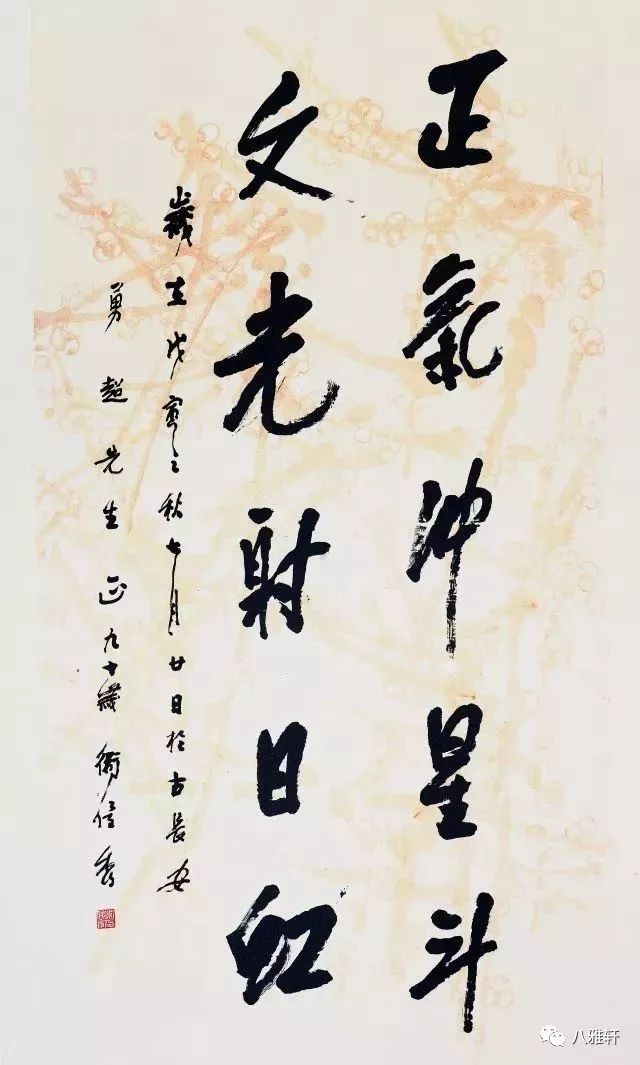 正氣沖星斗
文光射日虹
歲在戊寅之秋七月廿日於古長安
勇超先生正九十歲衛俊秀
八雅轩